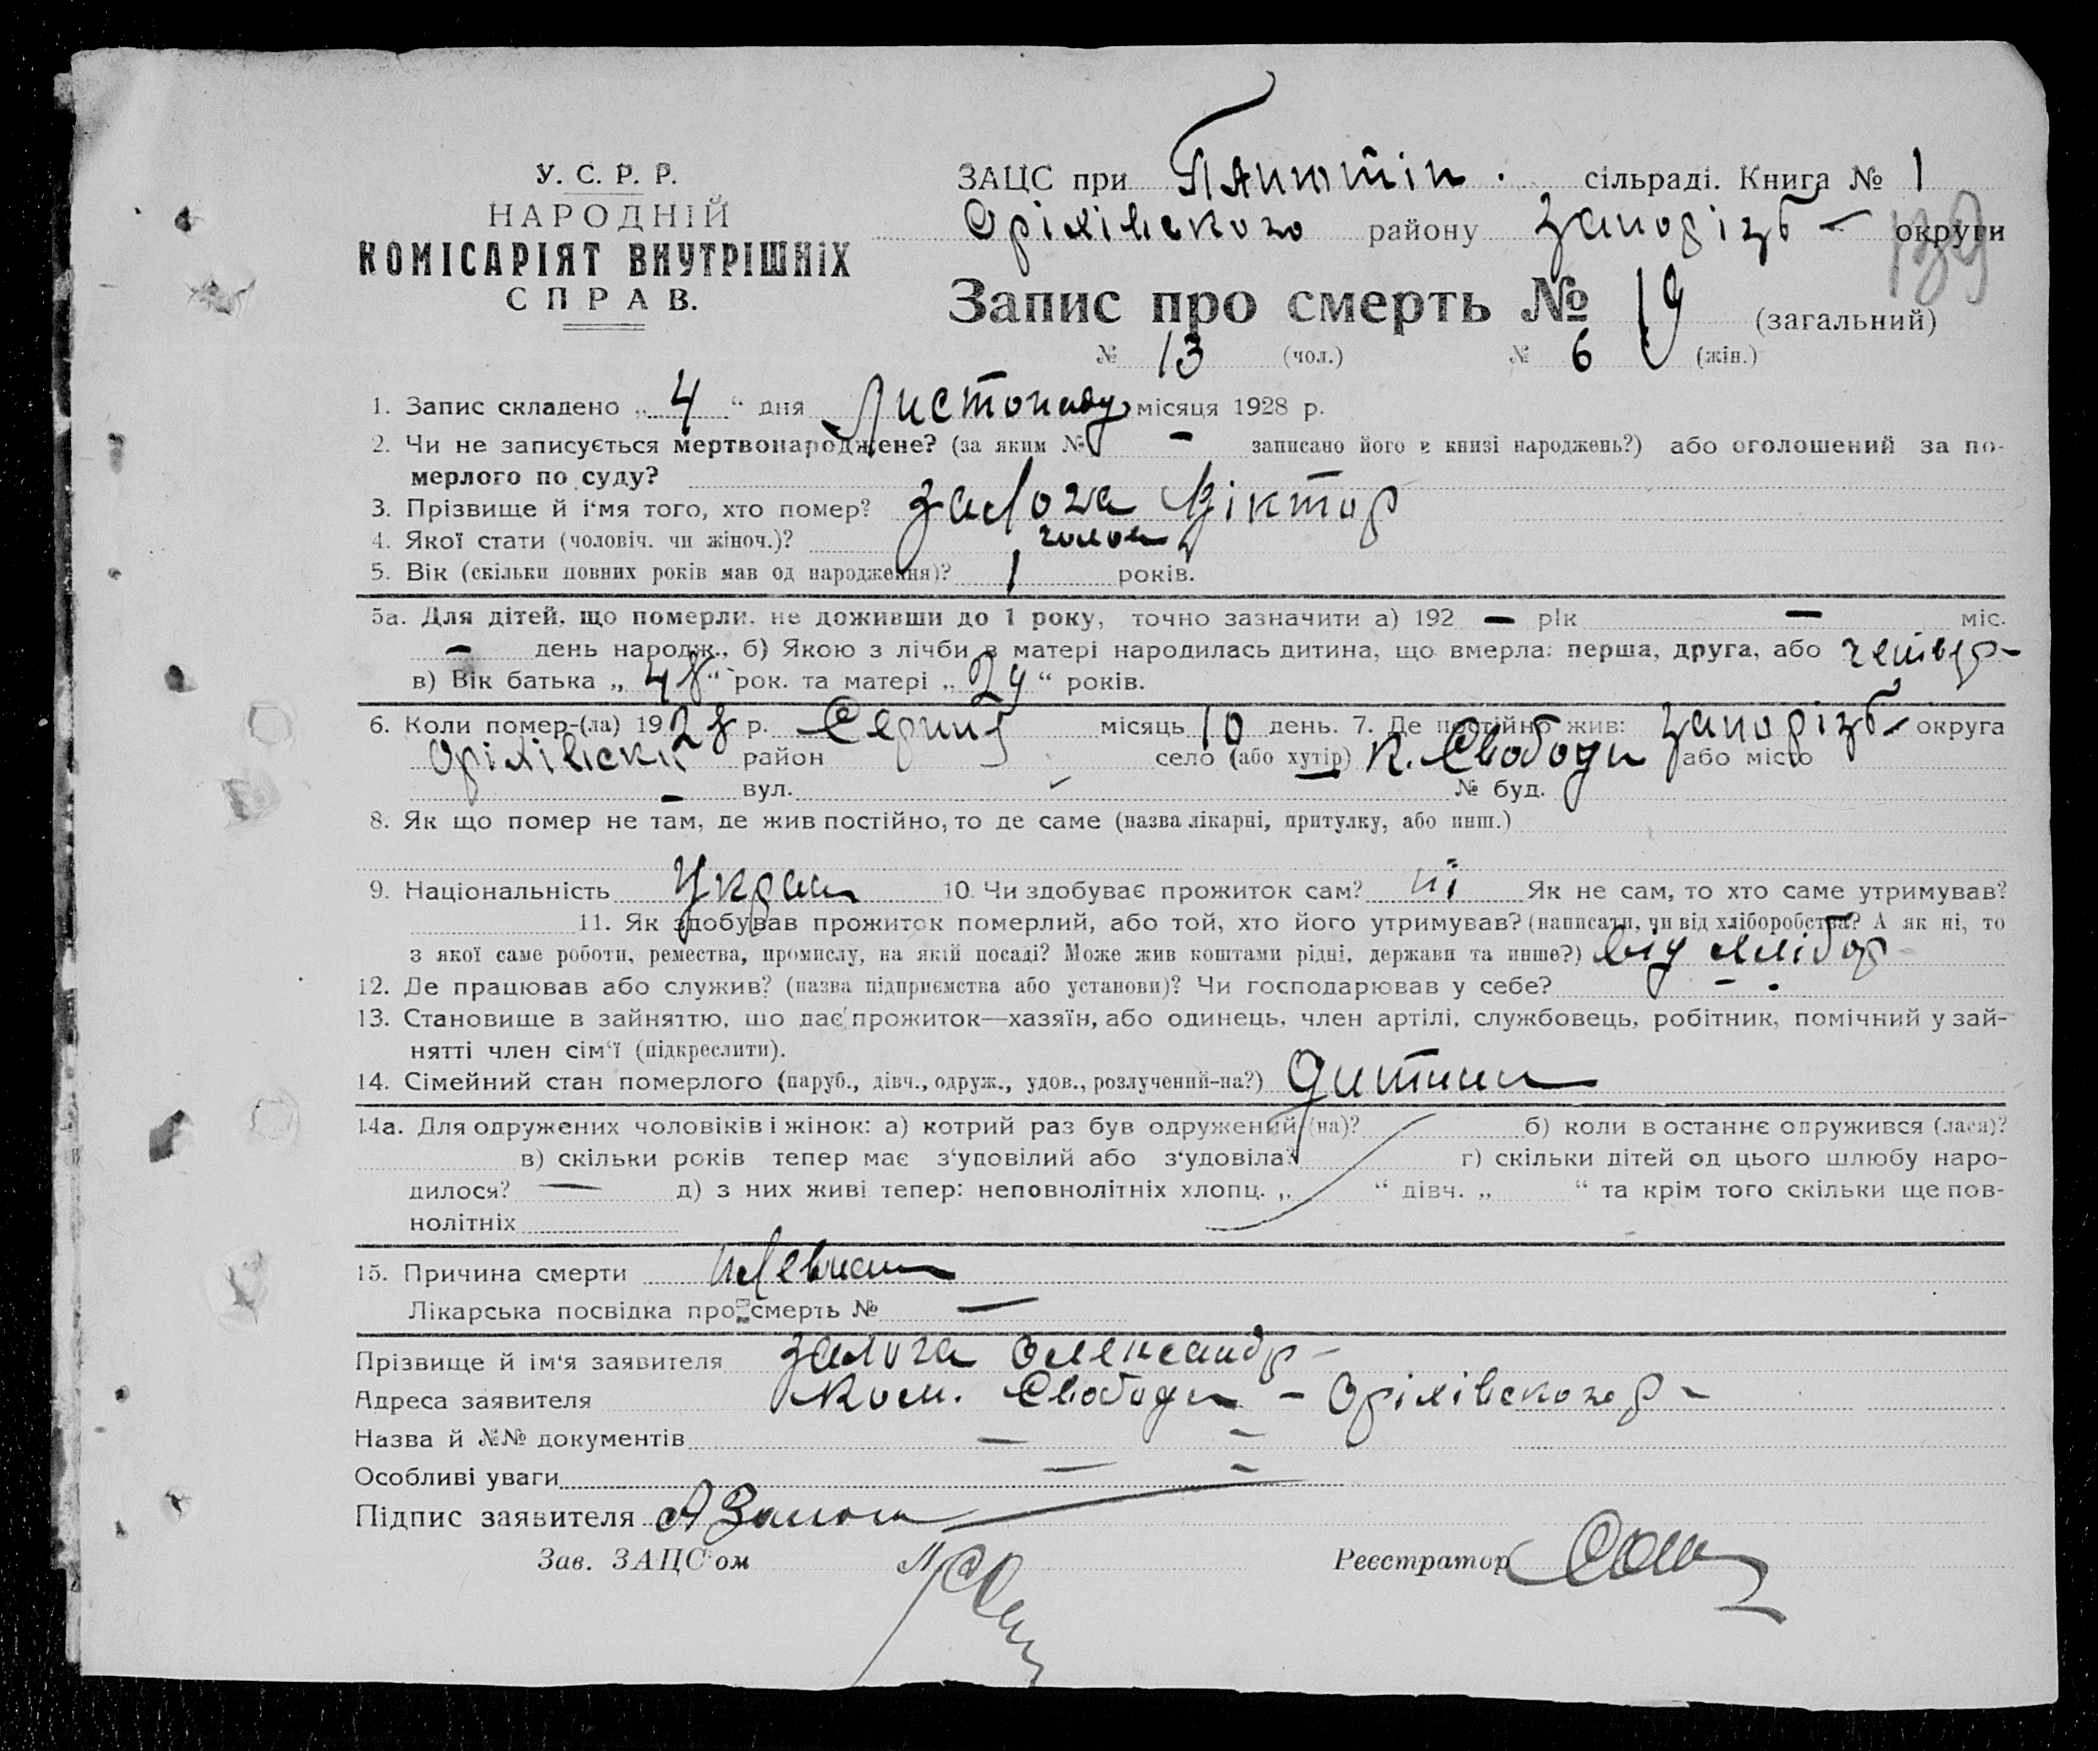 У. С. Р. Р.
НАРОДНІЙ
КОМІСАРІЯТ ВНУТРІШНІХ
СПРАВ.
ЗАЦС при сільраді. Книга № 1
Оріхівского району Запорізб – округи
139
Запис про смерть № 19 (загальний)
№ 13 (чол.) № 6 (жін.)
1. Запис складено „ 4 “ дня Листопаду місяця 1928 р.
2. Чи не записується мертвонароджене? (за яким № – записано його в книзі народжень?) або оголошений за по-
мерлого по суду?
3. Прізвище й і‘мя того, хто помер? Залога Віктор
4. Якої стати (чоловіч. чи жіноч.)? чолов
5. Вік (скільки повних років мав од народження)? 1 років.
5а. Для дітей, що померли, не доживши до 1 року, точно зазначити а) 192 – рік – міс.
– день народж., б) Якою з лічби в матері народилась дитина, що вмерла: перша, друга, або четвер–
в) Вік батька „ 48 “ рок. та матері „ 29 “ років.
6. Коли помер-(ла) 1928 р. Серпня місяць 10 день. 7. Де постійно жив: Запорізб– округа
Оріхівски район село (або хутір) К. Свободи або місто
– вул. № буд.
8. Як що помер не там, де жив постійно, то де саме (назва лікарні, притулку, або инш.)
9. Національність Украи 10. Чи здобуває прожиток сам? ні Як не сам, то хто саме утримував?
11. Як здобував прожиток померлий, або той, хто його утримував? (написати, чи від хліборобства? А як ні, то
з якої саме роботи, ремества, промислу, на якій посаді? Може жив коштами рідні, держави та инше?) від хлібор
12. Де працював або служив? (назва підприємства або установи)? Чи господарював у себе? –
13. Становище в зайняттю, що дає прожиток—хазяїн, або одинець, член артілі, службовець, робітник, помічний у зай-
нятті член сім‘ї (підкреслити).
14. Сімейний стан померлого (паруб., дівч., одруж., удов., розлучений-на?) Дитина
14а. Для одружених чоловіків і жінок: а) котрий раз був одружений (на)? б) коли в останнє одружився (лася)?
в) скільки років тепер має з‘удовілий або з‘удовіла? г) скільки дітей од цього шлюбу наро-
дилося? — д) з них живі тепер: неповнолітніх хлопц. „ “ дівч. „ “ та крім того скільки ще пов-
нолітніх
15. Причина смерти
Лікарська посвідка про смерть № —
Прізвище й ім‘я заявителя Залога Олександр –
Адреса заявителя Ком. Свободи – Оріхівского р –
Назва й №№ документів — –
Особливі уваги — –
Підпис заявителя А Залога
Зав. ЗАЦС‘ом
Реєстратор